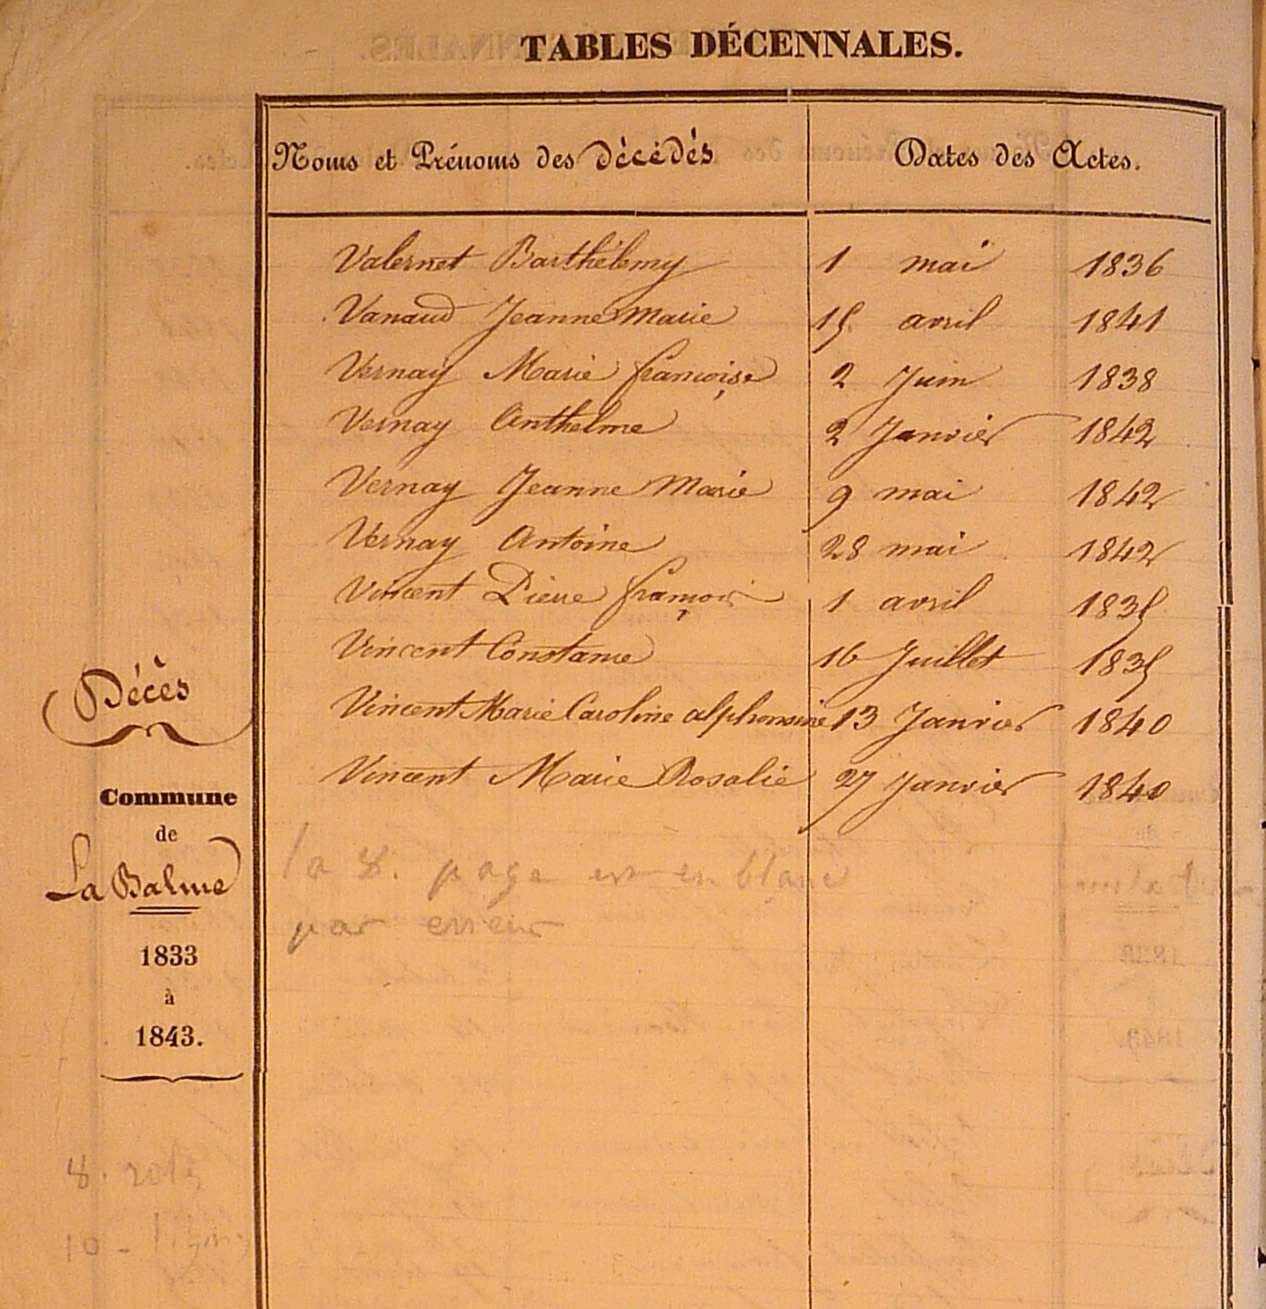 TABLES DÉCENNALES.
Noms et Prénoms des décédés Dates des Actes.
Valernet Barthélemy 1 mai 1836
Vanaud Jeanne Marie 15 avril 1841
Vernay Marie françoise 2 Juin 1838
Vernay Anthelme 2 Janvier 1842
Vernay Jeanne Marie 9 mai 1842
Vernay Antoine 28 mai 1842
Vincent Pierre françois 1 avril 1835
Vincent Constance 16 Juillet 1835
Vincent Marie Caroline alphonsine 13 Janvier 1840
Vincent Marie Rosalie 27 Janvier 1840
Décès
Commune
de
La Balme
1833
à
1843.
la 8. page est en blanc
par erreur
8. rôles
10 - lignes